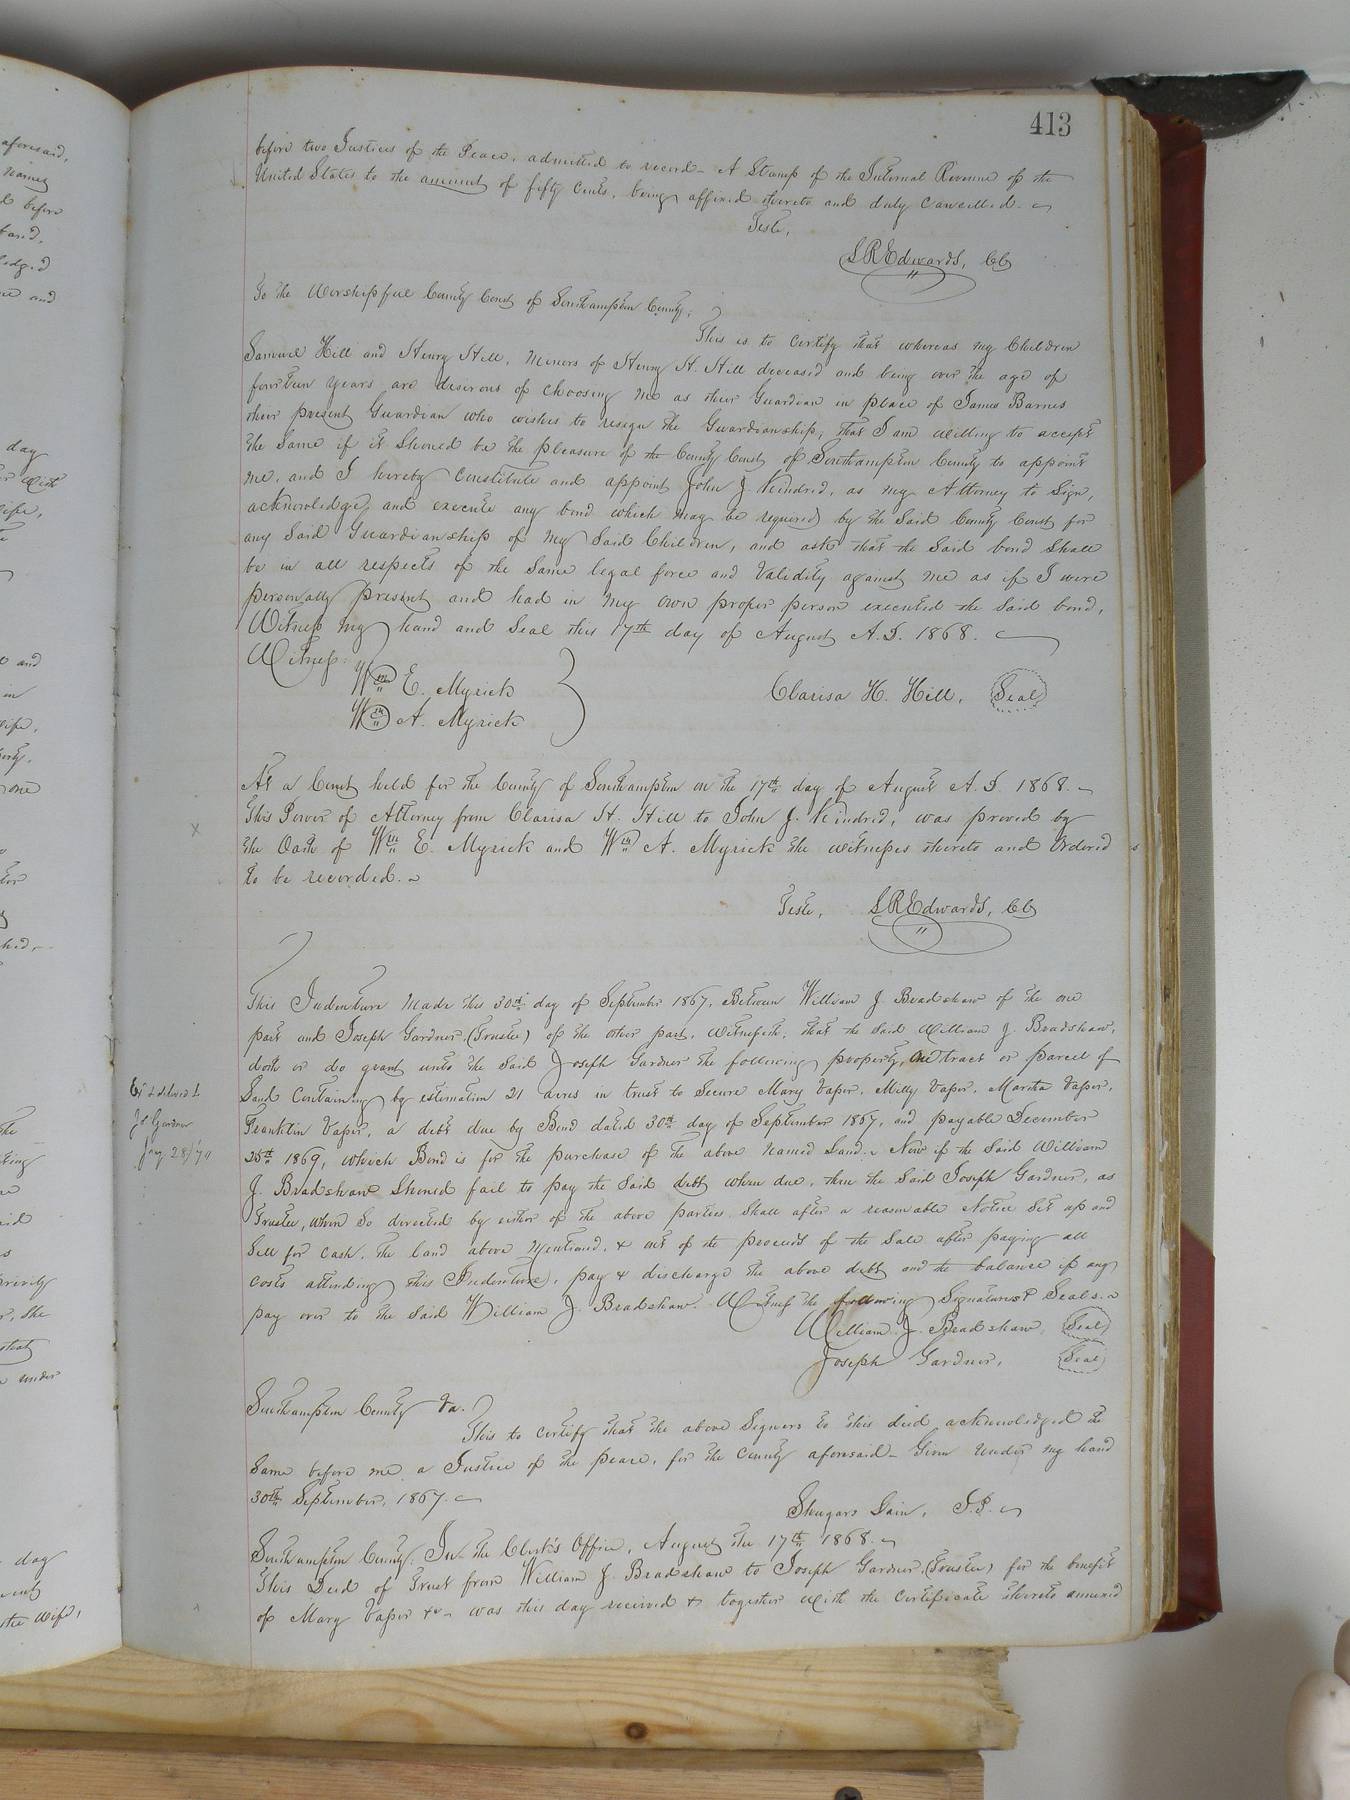 413
before two Justices of the Peace, admitted to record – A Stamp of the Internal Revenue of the
United States to the amount of fifty cents, being affixed thereto and duly cancelled.
Teste,
L R Edwards, CC
To the Worshipful County Court of Southampton County,
This is to certify that whereas my Children
Samuel Hill and Henry Hill, minors of Henry H. Hill deceased and being over the age of
fourteen years are desirous of choosing me as their Guardian in place of James Barnes
their present Guardian who wishes to resign the Guardianship, that I am willing to accept
the same if it should be the pleasure of the County Court of Southampton County to appoint
me, and I hereby constitute and appoint John J. Kindred, as my Attorney to sign,
acknowledge, and execute any bond which may be required by the said County Court for
any said Guardianship of my said Children, and ask that the said bond shall
be in all respects of the same legal force and Validity against me as if I were
personally present and had in my own proper person executed the said bond,
Witness my hand and seal this 17th day of August A.D. 1868.
Witness:
Wm E. Myrick
Wm A. Myrick
Clarisa H. Hill, Seal
At a Court held for the County of Southampton on the 17th day of August A.D. 1868.
This Power of Attorney from Clarisa H. Hill to John J. Kindred, was proved by
the Oath of Wm E. Myrick and Wm A. Myrick the witnesses thereto and Ordered
to be recorded.
Teste, L R Edwards, CC
This Indenture made this 30th day of September 1867, Between William J. Bradshaw of the one
part and Joseph Gardner (Trustee) of the other part, Witnesseth, that the said William J. Bradshaw,
doth or do grant unto the said Joseph Gardner the following property, One tract or parcel of
Land Containing by estimation 21 acres in trust to secure Mary Vaper, Milly Vaper, Marita Vaper,
Franklin Vaper, a debt due by Bond dated 30th day of September 1867, and payable December
25th 1869, which Bond is for the purchase of the above named Land. Now if the said William
J. Bradshaw should fail to pay the said debt when due, then the said Joseph Gardner, as
Trustee, when so directed by either of the above parties shall after a reasonable Notice set up and
sell for cash, the land above mentioned, & out of the proceeds of the sale after paying all
costs attending this Indenture, pay & discharge the above debt and the balance if any
pay over to the said William J. Bradshaw. Witness the following Signatures & Seals.
William J. Bradshaw, Seal
Joseph Gardner, Seal
Ex'd & delivered to
Jo Gardner
Jany 28/74
Southampton County Va.
This to certify that the above Signers to this deed, acknowledged the
same before me a Justice of the peace, for the County aforesaid – Given under my hand
30th September, 1867.
Shugars Lain, J.P.
Southampton County. In the Clerk's Office, August the 17th 1868.
This Deed of Trust from William J. Bradshaw to Joseph Gardner (Trustee) for the benefit
of Mary Vaper &c – was this day received & together with the Certificate thereto annexed